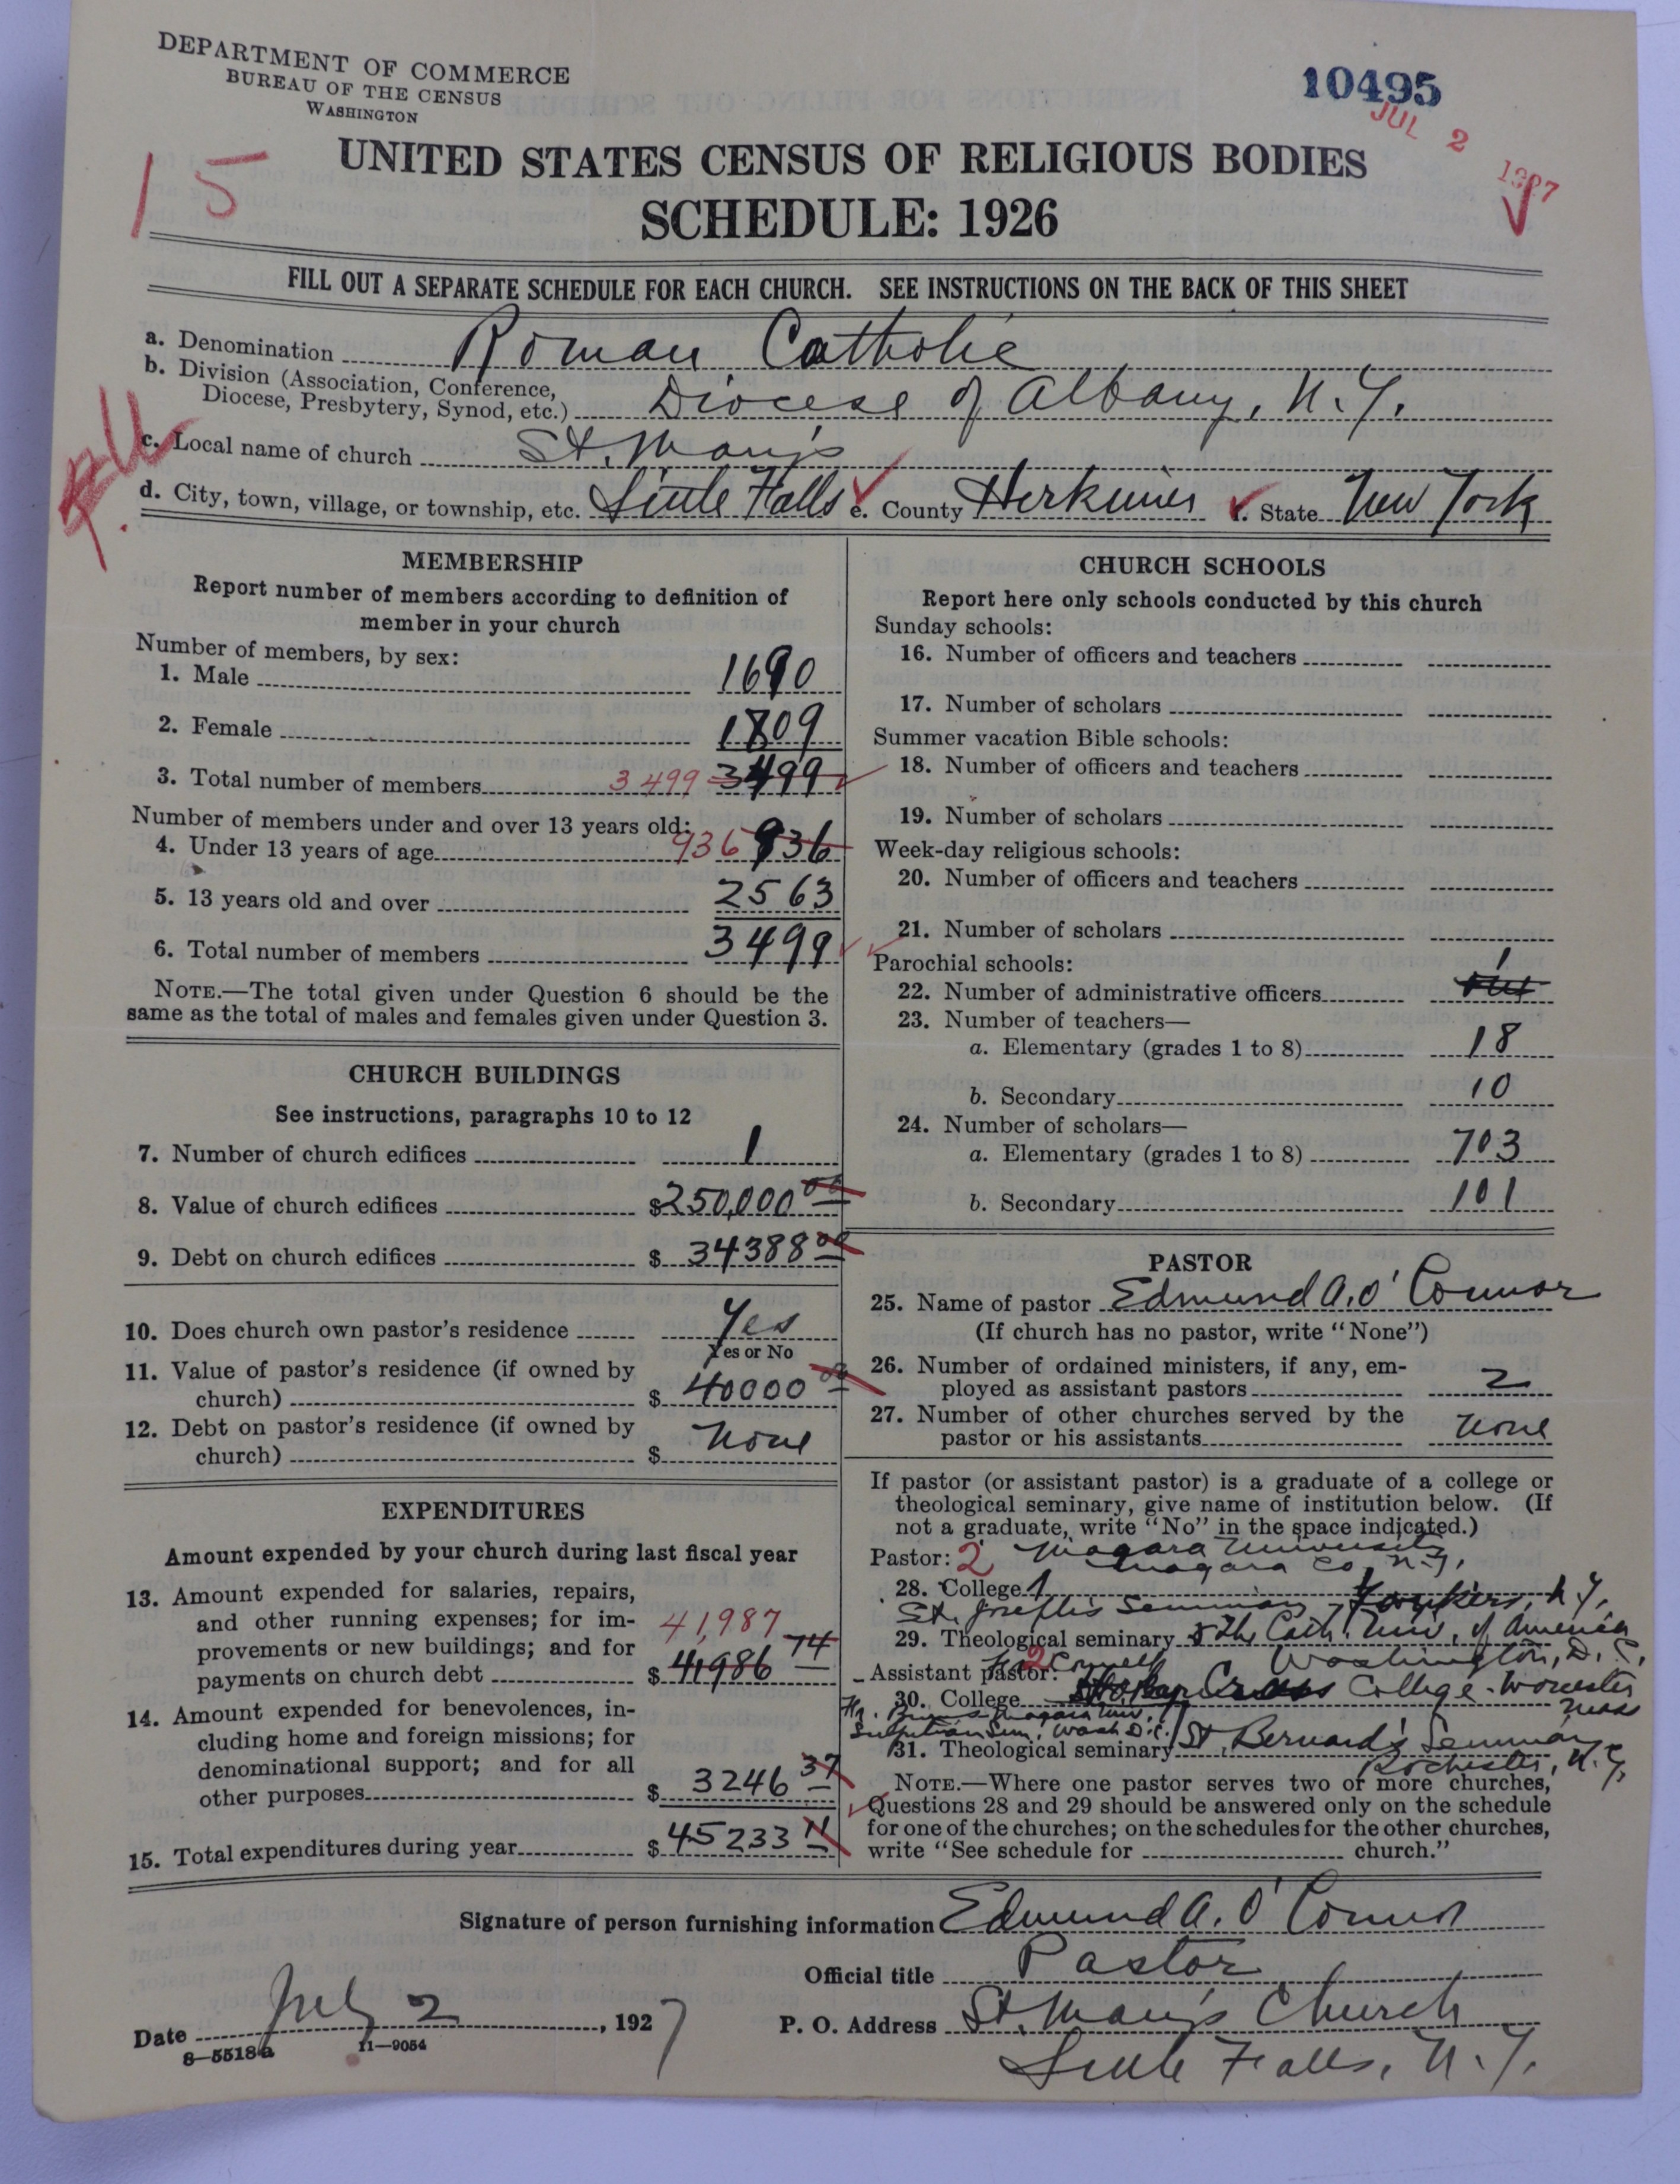 DEPARTMENT OF COMMERCE
BUREAU OF THE CENSUS
WASHINGTON
10495
JUL 2 1927
15
UNITED STATES CENSUS OF RELIGIOUS BODIES
SCHEDULE: 1926
FILL OUT A SEPARATE SCHEDULE FOR EACH CHURCH. SEE INSTRUCTIONS ON THE BACK OF THIS SHEET
a. Denomination Roman Catholic
b. Division (Association, Conference,
Diocese, Presbytery, Synod, etc.) Diocese of Albany, N.Y.
c. Local name of church St. Mary's
d. City, town, village, or township, etc. Little Falls e. County Herkimer f. State New York
MEMBERSHIP
Report number of members according to definition of
member in your church
Number of members, by sex:
1. Male 1690
2. Female 1809
3. Total number of members 3499 3499
Number of members under and over 13 years old:
4. Under 13 years of age 936 936
5. 13 years old and over 2563
6. Total number of members 3499
NOTE.—The total given under Question 6 should be the
same as the total of males and females given under Question 3.
CHURCH BUILDINGS
See instructions, paragraphs 10 to 12
7. Number of church edifices 1
8. Value of church edifices $250,000 00
9. Debt on church edifices $34388 00
10. Does church own pastor's residence Yes
Yes or No
11. Value of pastor's residence (if owned by
church) $40000 00
12. Debt on pastor's residence (if owned by
church) $None
EXPENDITURES
Amount expended by your church during last fiscal year
13. Amount expended for salaries, repairs,
and other running expenses; for im-
provements or new buildings; and for
payments on church debt $41986 74
41,987
14. Amount expended for benevolences, in-
cluding home and foreign missions; for
denominational support; and for all
other purposes $3246 37
15. Total expenditures during year $45233 11
CHURCH SCHOOLS
Report here only schools conducted by this church
Sunday schools:
16. Number of officers and teachers
17. Number of scholars
Summer vacation Bible schools:
18. Number of officers and teachers
19. Number of scholars
Week-day religious schools:
20. Number of officers and teachers
21. Number of scholars
Parochial schools:
22. Number of administrative officers 1
23. Number of teachers—
a. Elementary (grades 1 to 8) 18
b. Secondary 10
24. Number of scholars—
a. Elementary (grades 1 to 8) 703
b. Secondary 101
PASTOR
25. Name of pastor Edmund A. O'Connor
(If church has no pastor, write "None")
26. Number of ordained ministers, if any, em-
ployed as assistant pastors 2
27. Number of other churches served by the
pastor or his assistants None
If pastor (or assistant pastor) is a graduate of a college or
theological seminary, give name of institution below. (If
not a graduate, write "No" in the space indicated.)
Pastor: 2 Niagara University
Niagara Co. N.Y.
28. College 1
St. Joseph's Seminary - Yonkers, N.Y.
29. Theological seminary & The Cath. Univ. of America
Washington, D.C.
Assistant pastor: 2
30. College Holy Cross College - Worcester
Mass
Niagara Univ.
Sulpitian Sem. Wash D.C.
31. Theological seminary St. Bernard's Seminary
Rochester, N.Y.
NOTE.—Where one pastor serves two or more churches,
Questions 28 and 29 should be answered only on the schedule
for one of the churches; on the schedules for the other churches,
write "See schedule for church."
Signature of person furnishing information Edmund A. O'Connor
Official title Pastor
Date July 2, 1927
P. O. Address St. Mary's Church
Little Falls, N.Y.
8—5518a 11—9054